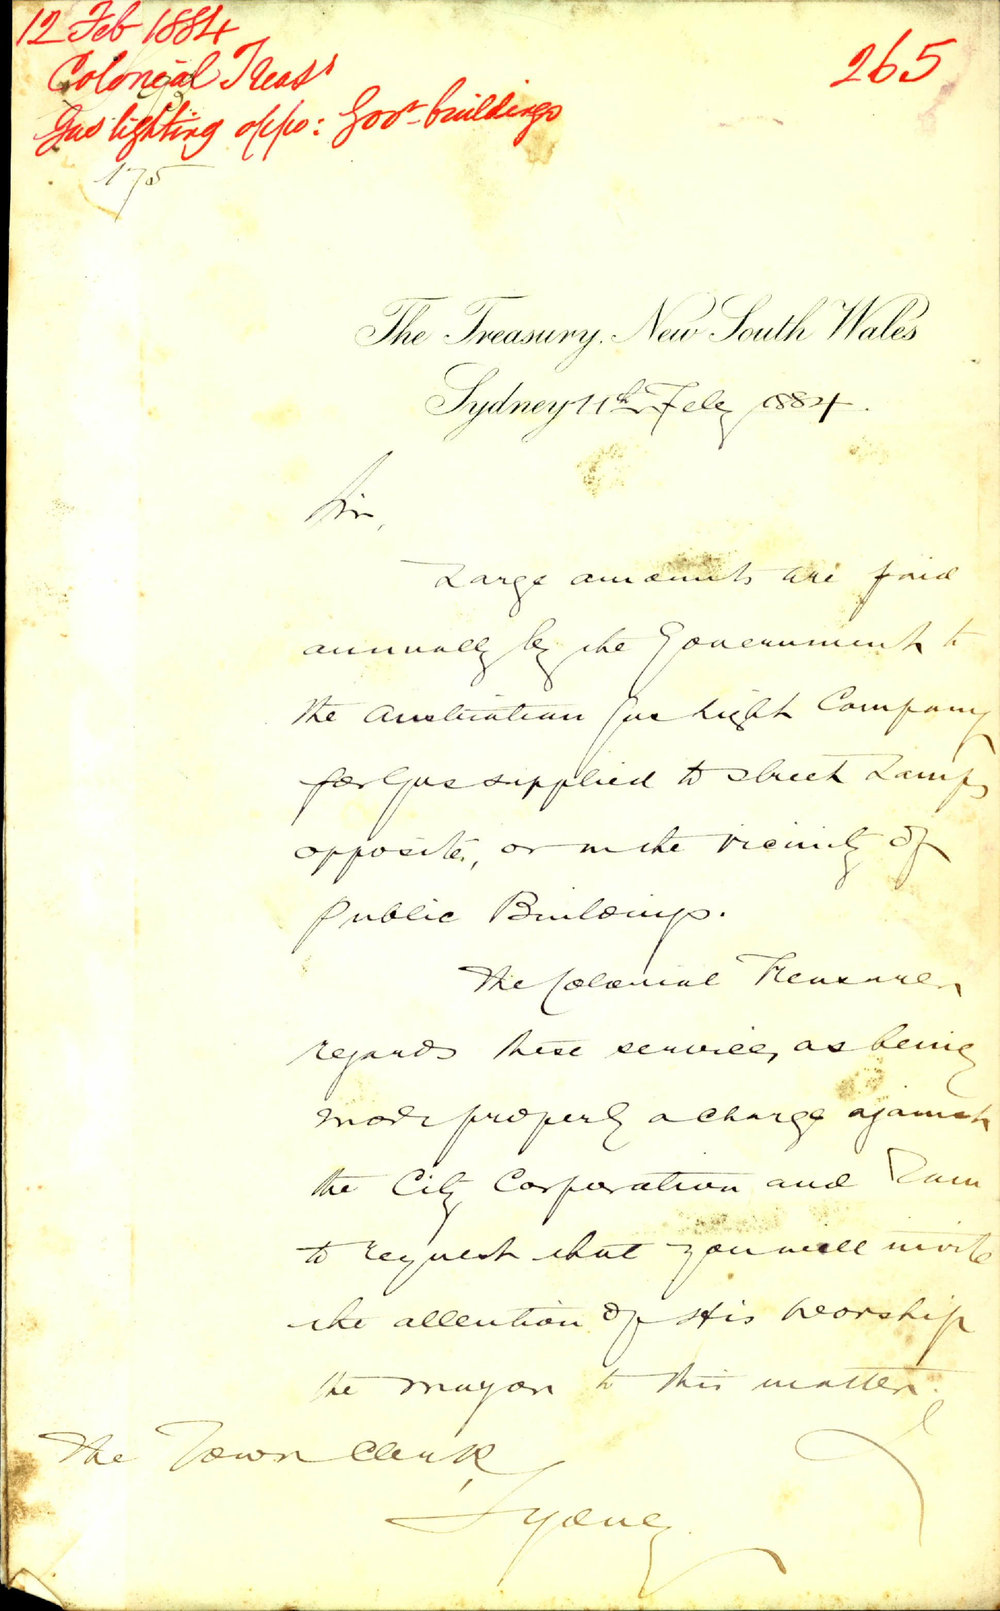 12 Feb 1884
265
Colonial Treasr
Gas lighting oppo: Govt buildings
175
The Treasury, New South Wales
Sydney 11th Feby 1884.
Sir,
Large amounts are paid
annually by the Government to
the Australian Gas Light Company
for Gas supplied to street Lamps
opposite, or in the vicinity of
Public Buildings.
The Colonial Treasurer
regards these services, as being
more properly a charge against
the City Corporation and I am
to request that you will invite
the attention of His Worship
the Mayor to this matter.
The Town Clerk
Sydney